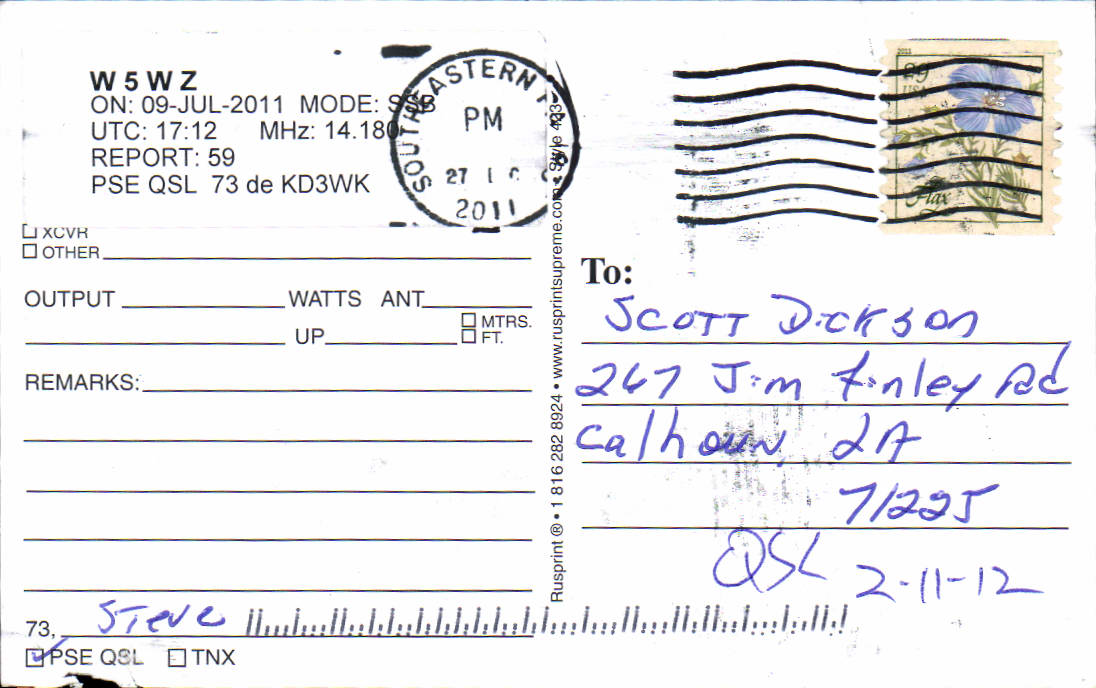 W5WZ
ON: 09-JUL-2011 MODE: SSB
UTC: 17:12 MHz: 14.180
REPORT: 59
PSE QSL 73 de KD3WK
XCVR
OTHER
OUTPUT WATTS ANT
UP MTRS.
FT.
REMARKS:
73, Steve
PSE QSL TNX
Rusprint ® • 1 816 282 8924 • www.rusprintsupreme.com • Style
SOUTHEASTERN
PM
27
2011
2011
29
USA
Flax
To:
Scott Dickson
267 Jim Finley Rd
Calhoun, LA
71225
QSL 2-11-12